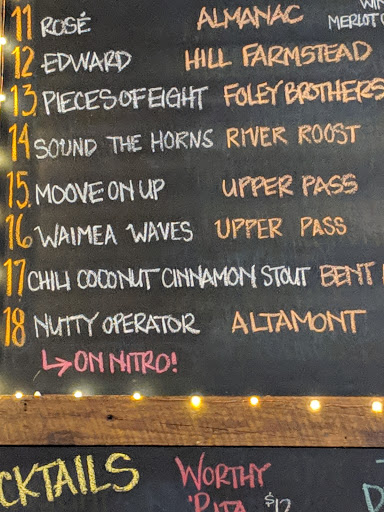 11 ROSÉ ALMANAC
MERLOT
12 EDWARD HILL FARMSTEAD
13 PIECES OF EIGHT FOLEY BROTHERS
14 SOUND THE HORNS RIVER ROOST
15. MOOVE ON UP UPPER PASS
16 WAIMEA WAVES UPPER PASS
17 CHILI COCONUT CINNAMON STOUT BENT
18 NUTTY OPERATOR ALTAMONT
↳ ON NITRO!
CKTAILS WORTHY
'RITA $12